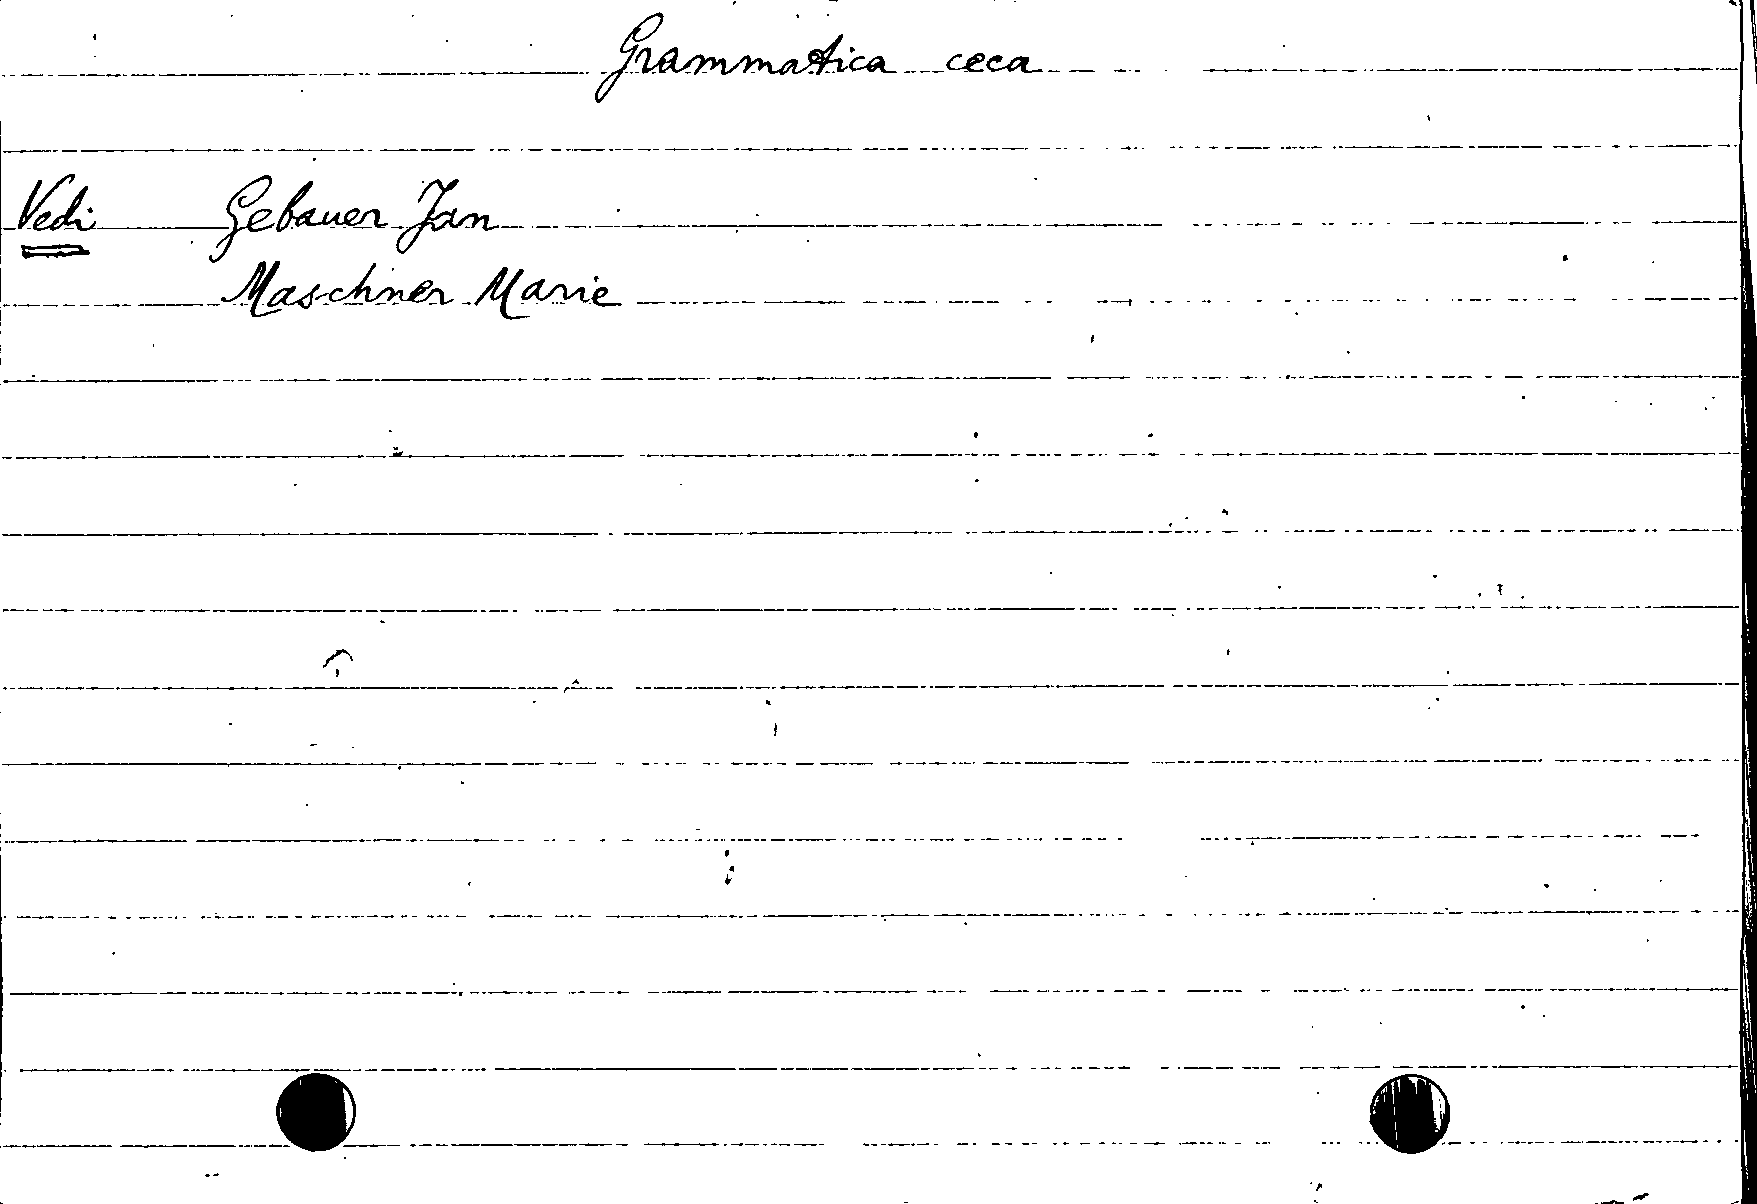 Grammatica ceca
Vedi Gebauer Jan
Maschner Marie